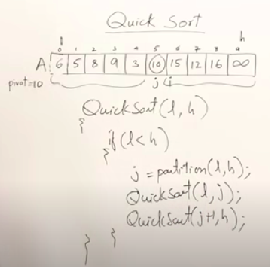 Quick Sort
l h
0 1 2 3 4 5 6 7 8 9
A 6 5 8 9 3 10 15 12 16 ∞
pivot=10 j i
QuickSort(l, h)
{
if(l<h)
{
j=partition(l,h);
QuickSort(l,j);
QuickSort(j+1,h);
}
}